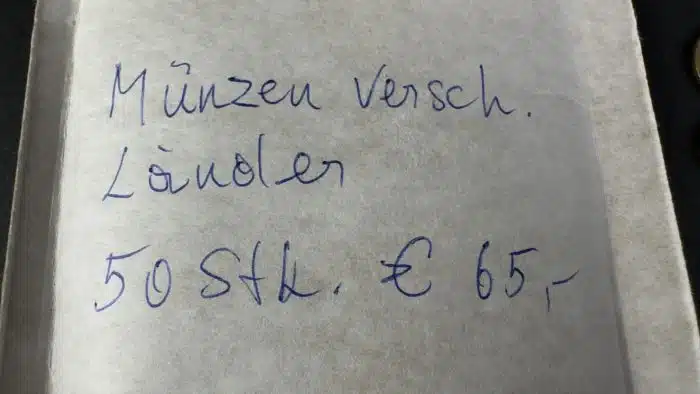 Münzen versch.
Länder
50 Stk. € 65,-